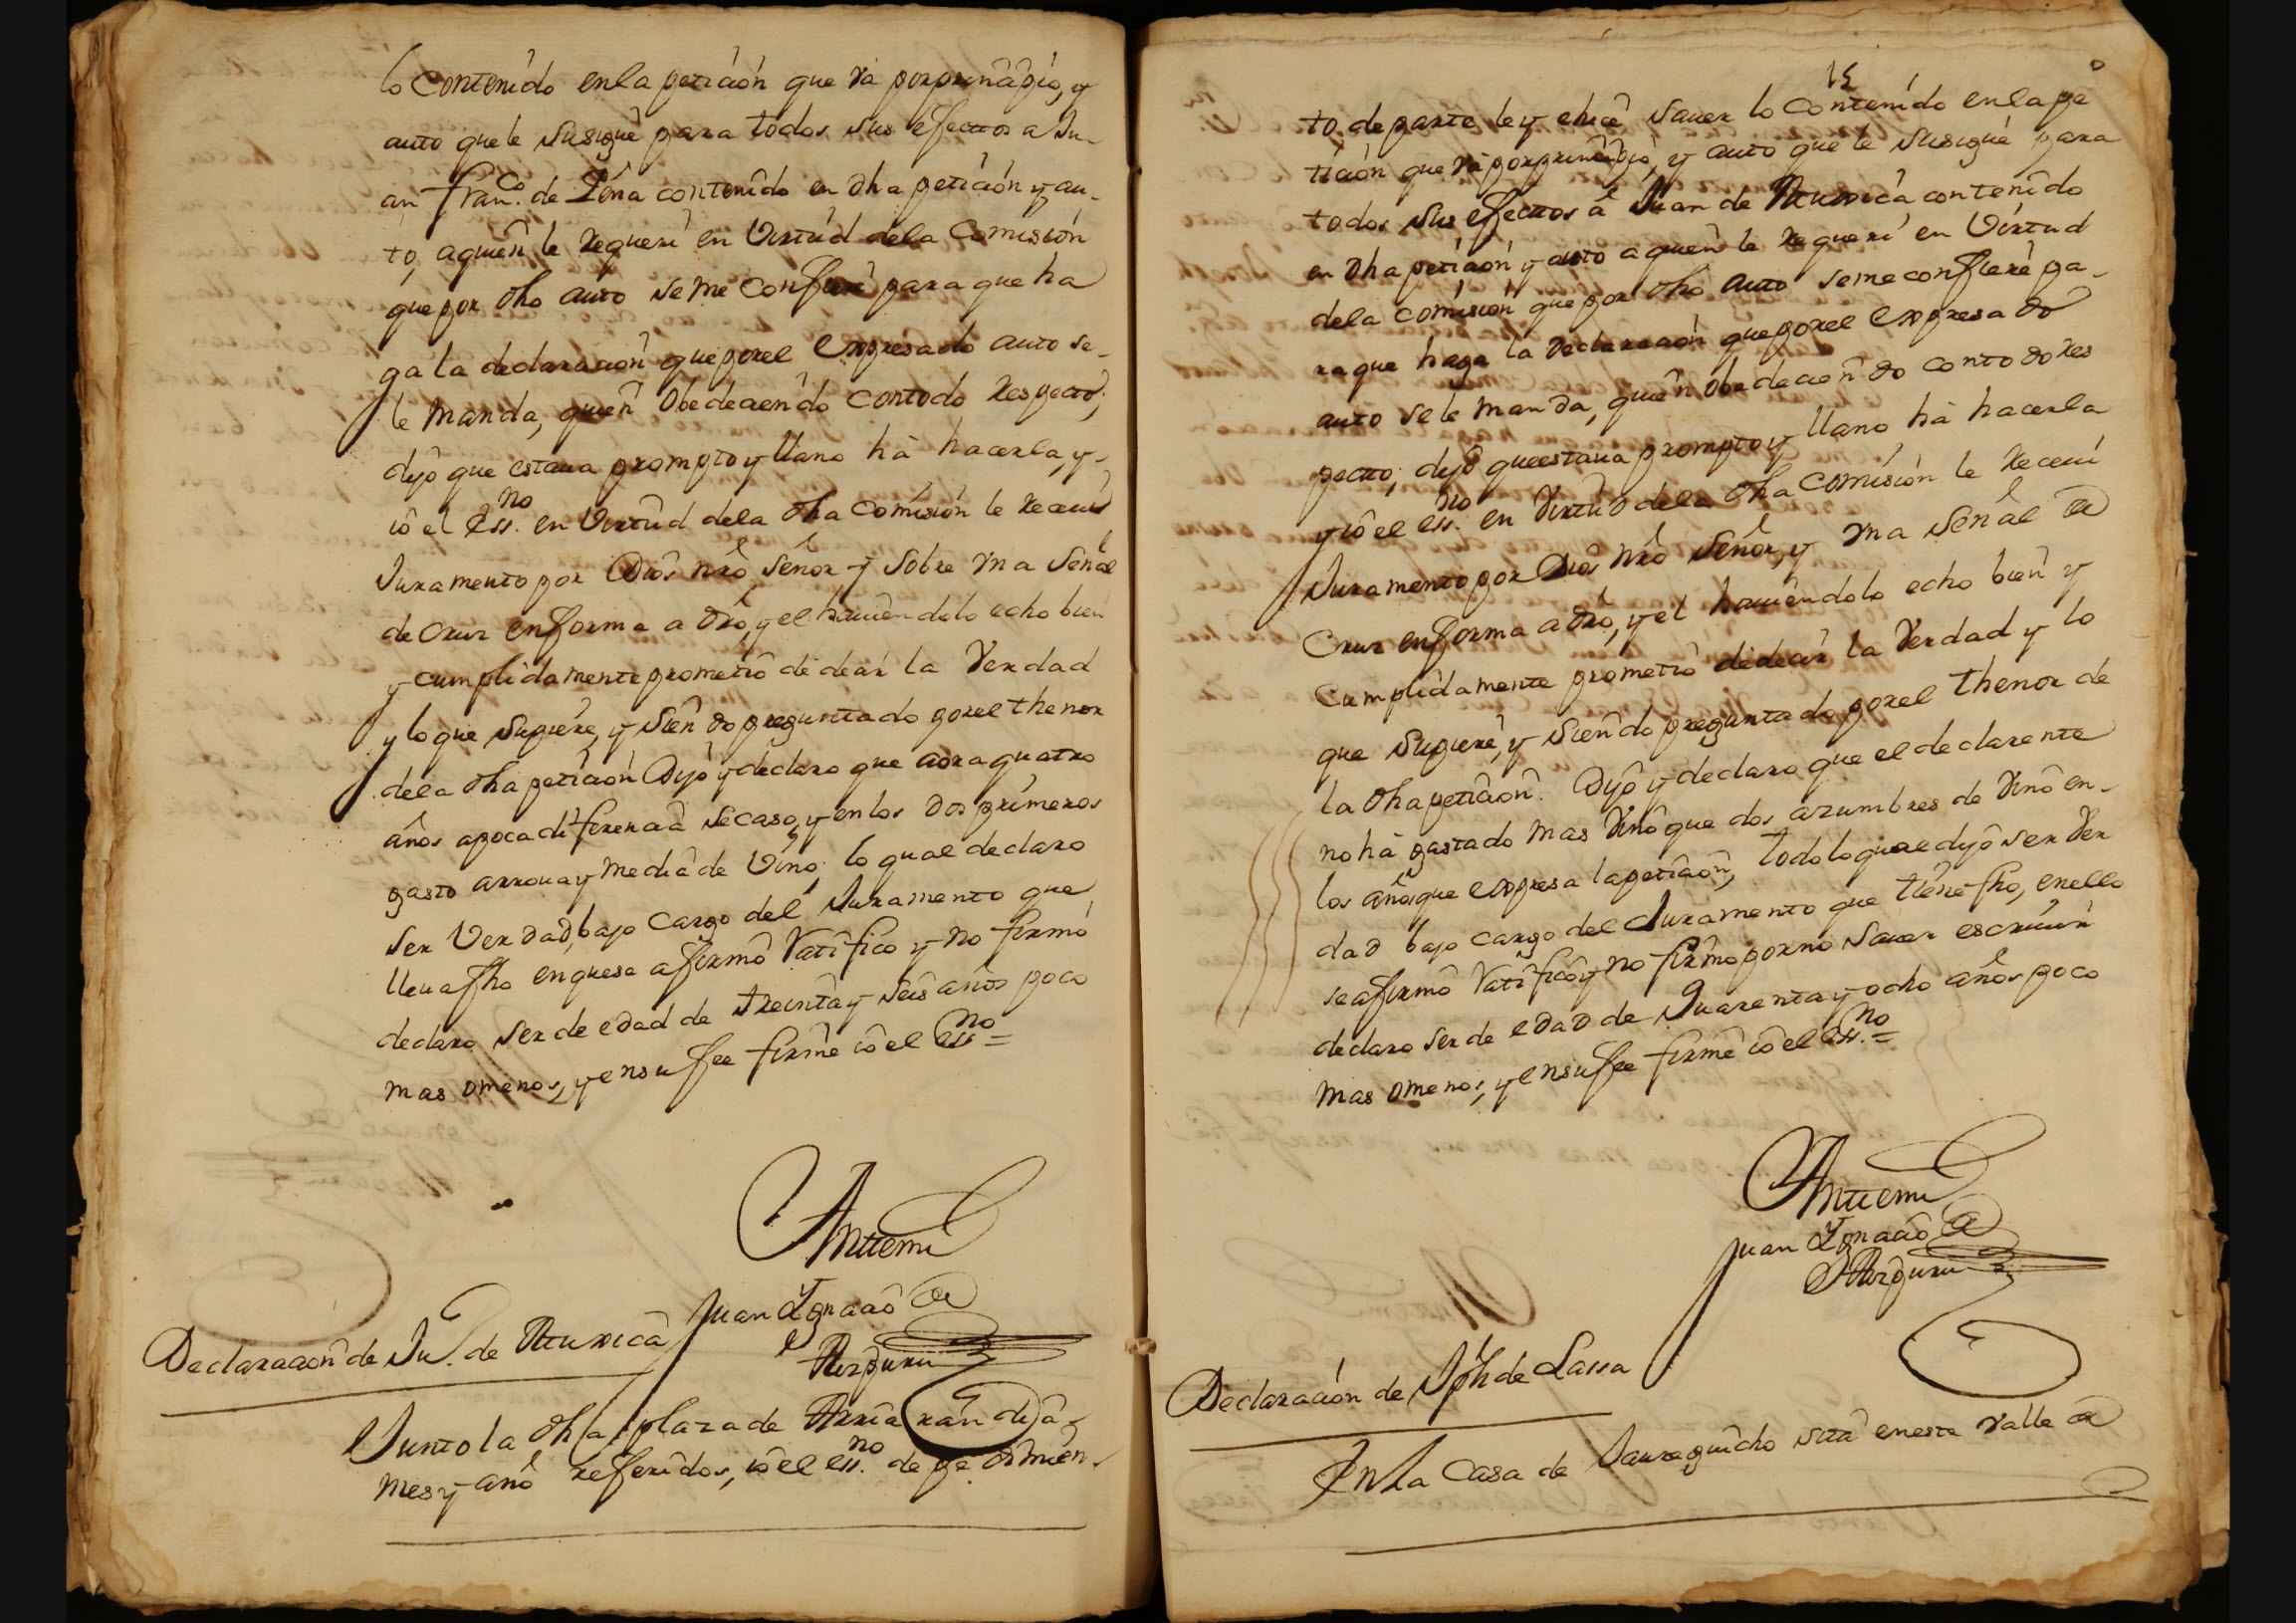 lo Contenido enla peticion que va por principio, y
auto que le susigue para todos sus efectos a Ju-
an Fran.co de Leña contenido en dha peticion y au-
to, aquien le requeri en Virtud dela Comision
que por dho auto seme Confiere para que ha
ga la declaracion que porel expresado auto se-
le manda, quien obedeciendo contodo respecto,
dijo que estaua prompto y llano hà hacerla, y-
io el Ess.no en Virtud dela dha Comision le reciui
Juramento por Dios nro señor y sobre vna señal
de Cruz enforma a dro, y el hauiendolo echo bien
y cumplidamente prometio de decir la Verdad
y lo que supiere, y siendo preguntado porel thenor
dela dha peticion Dijo y declaro que aora quatro
años apoca diferencia se caso, y enlos dos primeros
gasto arroua y media de Vino, lo qual declaro
ser Verdad, bajo cargo del Juramento que
lleua fho enquese afirmo Ratifico y no firmo
declaro ser de edad de treinta y seis años poco
mas omenos, y ensufee firme io el Ess.no =
Anttemi
Juan Ygnacio de
Azpuru
Declaracion de Ju.n de Iturrica
Junto la dha plaza de dia
mes y año referidos, io el ess.no de pedimien-
15
to de parte ley e hice sauer lo Contenido enla pe
ticion que va por principio, y auto que le susigue para
todos sus efectos â Juan de Iturrica contenido
en dha peticion y auto aquien le requeri en Virtud
dela comision que por dho auto seme confiere pa-
ra que haga la declaracion que porel expresado
auto sele manda, quien obedeciendo contodo res
pecto, dijo queestaua prompto y llano hà hacerla
y io el ess.no en Virtud dela dha Comision le reciui
Juramento por Dios nro señor, y vna señal de
Cruz enforma a dro, y el hauiendolo echo bien y
cumplidamente prometio dedecir la Verdad y lo
que supiere, y siendo preguntado porel thenor de
la dha peticion. Dijo y declaro que el declarente
no hà gastado mas vino que dos azumbres de vino en-
los años que expresa la peticion, todo lo qual dijo ser Ver
dad bajo cargo del Juramento que tiene fho, enello
se afirmo Ratifico y no firmo por no sauer escriuir
declaro ser de edad de quarenta y ocho años poco
mas omenos, y ensufee firme io el Ess.no =
Anttemi
Juan Ygnacio de
Azpuru
Declaracion de Jph de Lassa
En La Casa de Jaureguicho sita eneste valle de